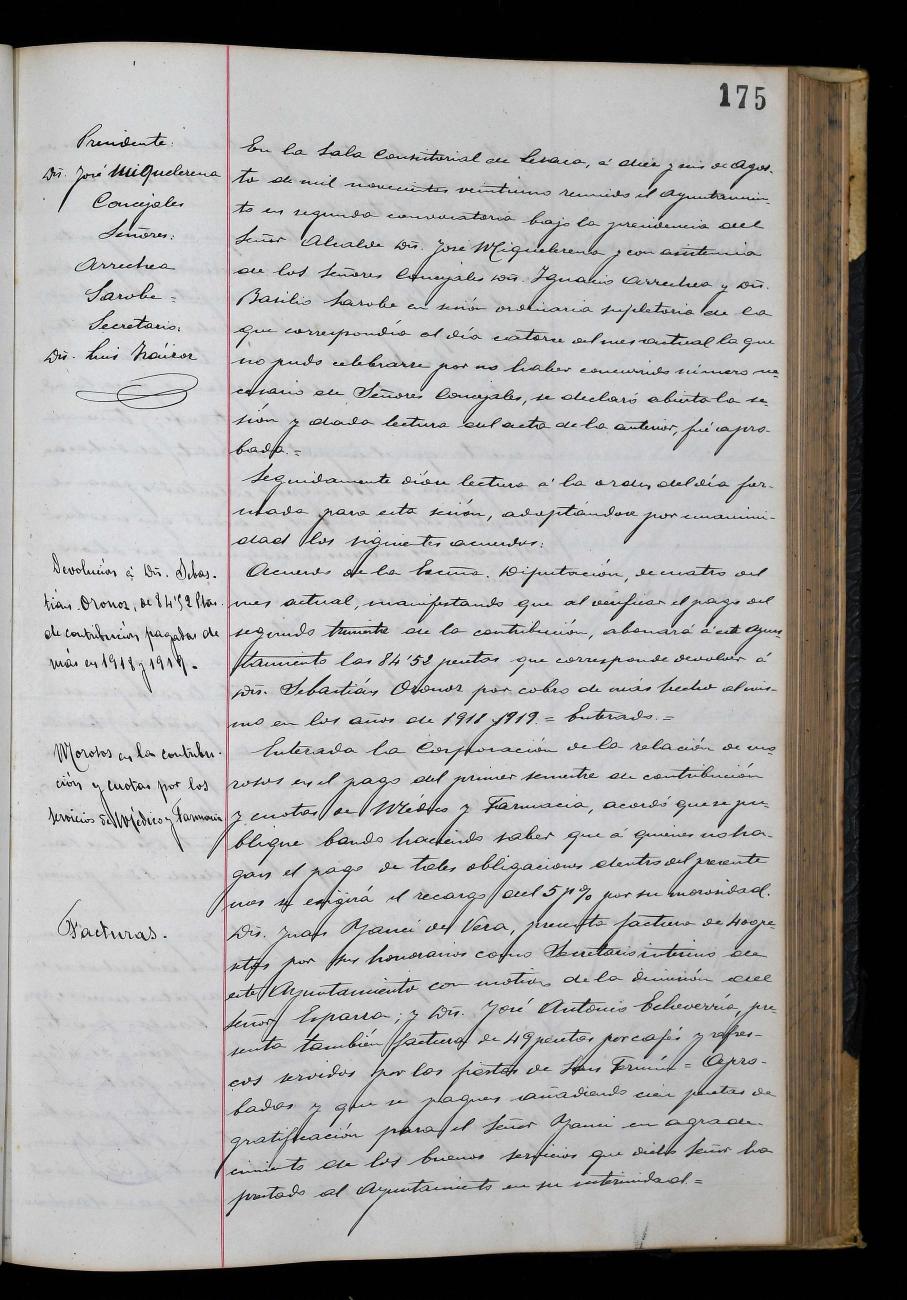 175
Presidente:
Dn. José Miquelerena
Concejales
Señores:
Arrechea
Sarobe =
Secretario:
Dn. Luis
En la Sala Consitorial de Lesaca, á diez y seis de Agos-
to de mil novecientos veintiuno reunido el Ayuntamien-
to en segunda convocatoria bajo la presidencia del
Señor Alcalde Dn. José Miquelerena y con asistencia
de los Señores Concejales Dn. Ignacio Arrechea y Dn.
Basilio Sarobe en sesión ordinaria supletoria de la
que correspondía al día catorce del mes actual la que
no pudo celebrarse por no haber concurrido número ne-
cesario de Señores Concejales, se declaró abierta la se-
sión y dada lectura del acta de la anterior, fué apro-
bada. =
Seguidamente dióse lectura á la orden del día for-
mada para esta sesión, adoptándose por unanimi-
dad los siguientes acuerdos:
Devolución á Dn. Sebas-
tián Oronoz, de 84'52 Ptas.
de contribución pagadas de
más en 1918 y 1919.-
Acuerdo de la Excma. Diputación, de cuatro del
mes actual, manifestando que al verificar el pago del
segundo trimestre de la contribución, abonará á este Ayun-
tamiento las 84'52 pesetas que corresponde devolver á
Dn. Sebastián Oronoz por cobro de más hecho al mis-
mo en los años de 1918 y 1919. = Enterado. =
Morosos en la contribu-
ción y cuotas por los
servicios de Médico y Farmacia
Enterada la Corporación de la relación de mo-
rosos en el pago del primer semestre de contribución
y cuotas de Médico y Farmacia, acordó que se pu-
blique bando haciendo saber que á quienes no ha-
gan el pago de tales obligaciones dentro del presente
mes se exigirá el recargo del 5 p% por su morosidad.
Facturas.
Dn. Juan Yanci de Vera, presenta factura de 40 pe-
setas por sus honorarios como Secretario interino de
este Ayuntamiento con motivo de la dimisión del
Señor Esparza; y Dn. José Antonio Echeverría, pre-
senta también factura de 49 pesetas por cafés y refres-
cos servidos por las fiestas de San Fermín = Apro-
badas y que se paguen añadiendo cien pesetas de
gratificación para el Señor Yanci en agrade-
cimiento de los buenos servicios que dicho Señor ha
prestado al Ayuntamiento en su interinidad. =